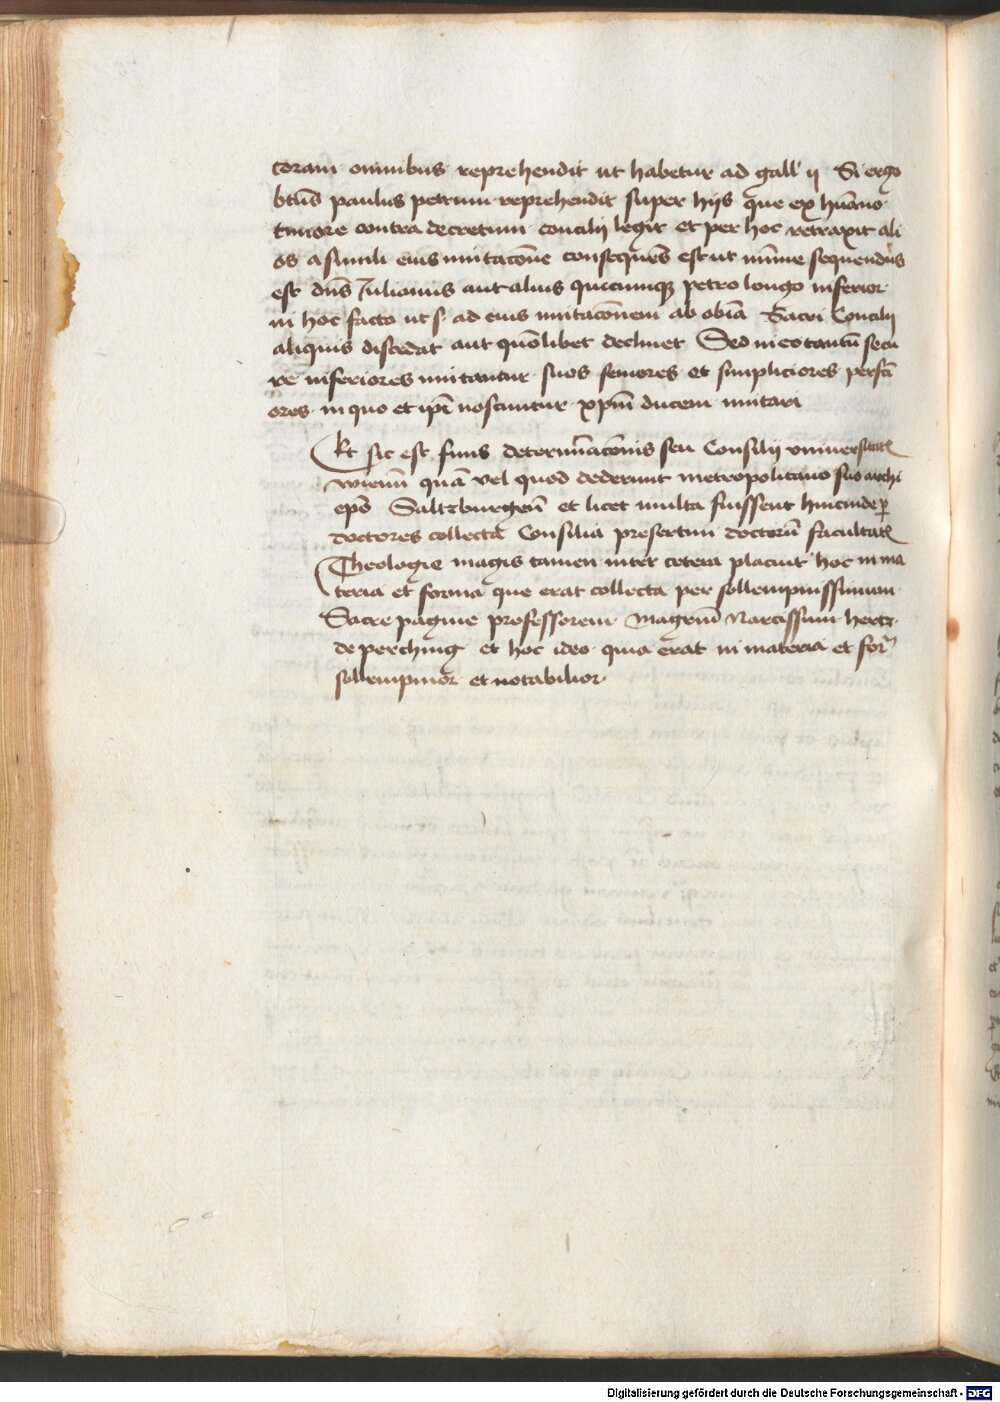 coram omnibus reprehendit ut habetur ad gall' ij Si ergo
btūs paulus petrum reprehendit super hijs que ex hūano
timore contra decretum concilij legit et per hoc retraxit ali
os a simili eius imitacōne consequēs est ut mīme sequendus
est dūs Iulianus aut alius quicumqz petro longo inferior
in hoc facto ut s ad eius imitacōnem ab obīa Sacri Concilij
aliquis discedat aut quōlibet declinet Sed in eo tantū secu
re inferiores imitantur suos seniores et simpliciores perfcī
ores in quo et ipī noscuntur xpm̄ ducem imitari
Et sic est finis determīacōnis seu Consilij universitatis
wienn̄ quā vel quod dederunt metropolitano suo archi
epō Saltzburgen̄ et licet multa fuissent hincinde per
doctores collecta Consilia presertim doctorū facultatis
Theologie magis tamen inter cetera placuit hoc in ma
teria et forma que erat collecta per sollempnissimum
Sacre pagine professorem Magrum̄ Narcissum hertz
de perching et hoc ideo quia erat in materia et for
sollempnior et notabilior
Digitalisierung gefördert durch die Deutsche Forschungsgemeinschaft - DFG